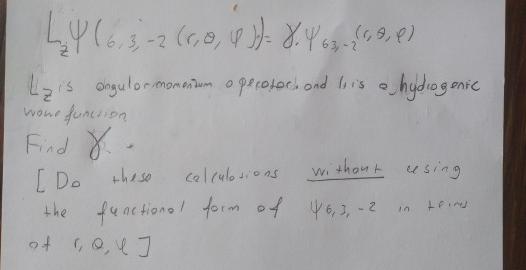 L_z Ψ(6,3,-2 (r,θ,φ))= γ.Ψ_63,-2(r,θ,φ)
L_z is angular momentum operator, and is a hydrogenic
wave function
Find γ.
[ Do these calculations without using
the functional form of Ψ6,3,-2 in terms
of r, θ, φ ]